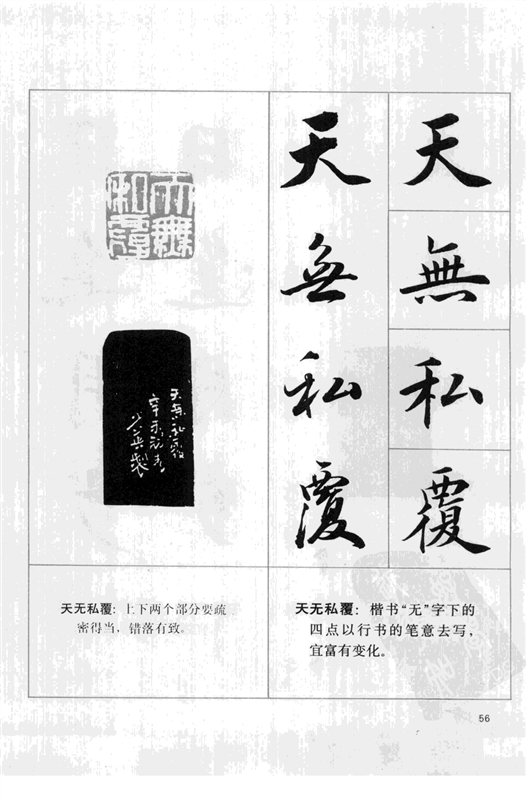 天無私覆
天無私覆
天無私覆
天無私覆
辛未初春
天无私覆：上下两个部分要疏
密得当，错落有致。
天无私覆：楷书“无”字下的
四点以行书的笔意去写，
宜富有变化。
56